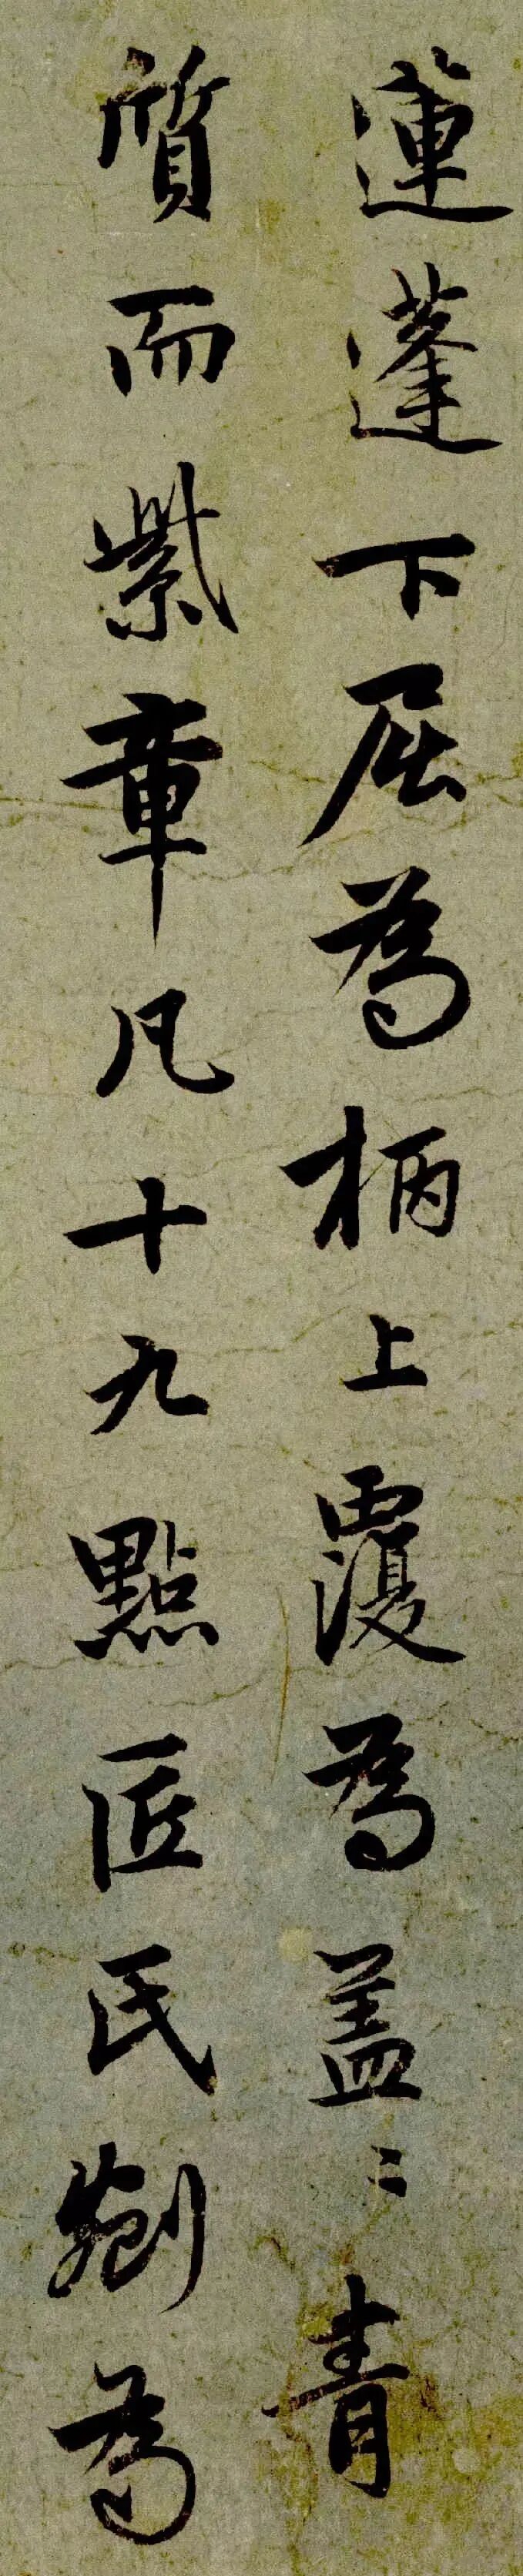 蓮蓬下屈為柄上覆為盖〻青
質而紫章凡十九點匠氏剜為